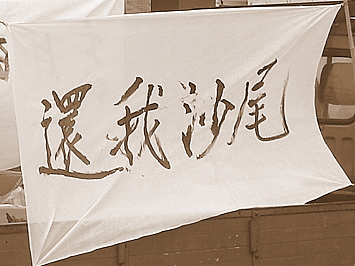 還我沙尾